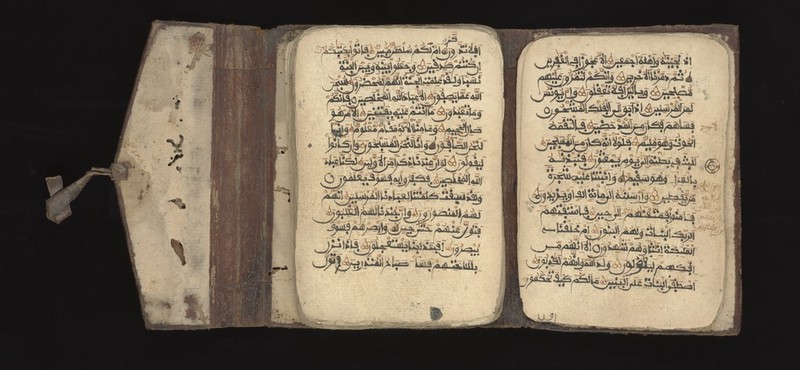 اذ نجينه واهله اجمعين الا عجوزا في الغبرين
ثم دمرنا الاخرين وانكم لتمرون عليهم
مصبحين وباليل افلا تعقلون وان يونس
لمن المرسلين اذ ابق الى الفلك المشحون
فساهم فكان من المدحضين فالتقمه
الحوت وهو مليم فلولا انه كان من المسبحين
للبث في بطنه الى يوم يبعثون فنبذنه
بالعرا وهو سقيم وانبتنا عليه شجرة
من يقطين وارسلنه الى مائة الف او يزيدون
فامنوا فمتعنهم الى حين فاستفتهم
الربك البنات ولهم البنون ام خلقنا
الملئكة اناثا وهم شهدون الا انهم من
افكهم ليقولون ولد الله وانهم لكذبون
اصطفى البنات على البنين مالكم كيف تحكمون
افلا تذكرون ام لكم سلطن مبين فاتوا بكتبكم
ان كنتم صدقين وجعلوا بينه وبين الجنة
نسبا ولقد علمت الجنة انهم لمحضرون سبحن
الله عما يصفون الا عباد الله المخلصين فانكم
وما تعبدون ما انتم عليه بفتنين الا من هو
صال الجحيم وما منا الا له مقام معلوم وانا
لنحن الصافون وانا لنحن المسبحون وان كانوا
ليقولون لو ان عندنا ذكرا من الاولين لكنا عباد
الله المخلصين فكفروا به فسوف يعلمون
ولقد سبقت كلمتنا لعبادنا المرسلين انهم
لهم المنصورون وان جندنا لهم الغلبون
فتول عنهم حتى حين وابصرهم فسوف
يبصرون افبعذابنا يستعجلون فاذا نزل
بساحتهم فسا صباح المنذرين وتول